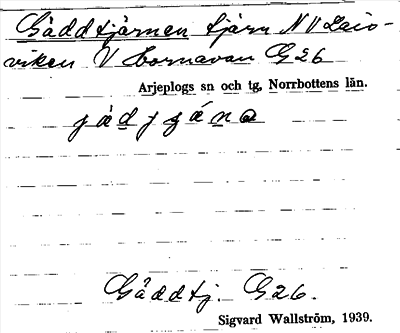 Gäddtjärnen tjärn NV Lais-
viken V Hornavan G26
Arjeplogs sn och tg, Norrbottens län.
Gäddtj. G26.
Sigvard Wallström, 1939.